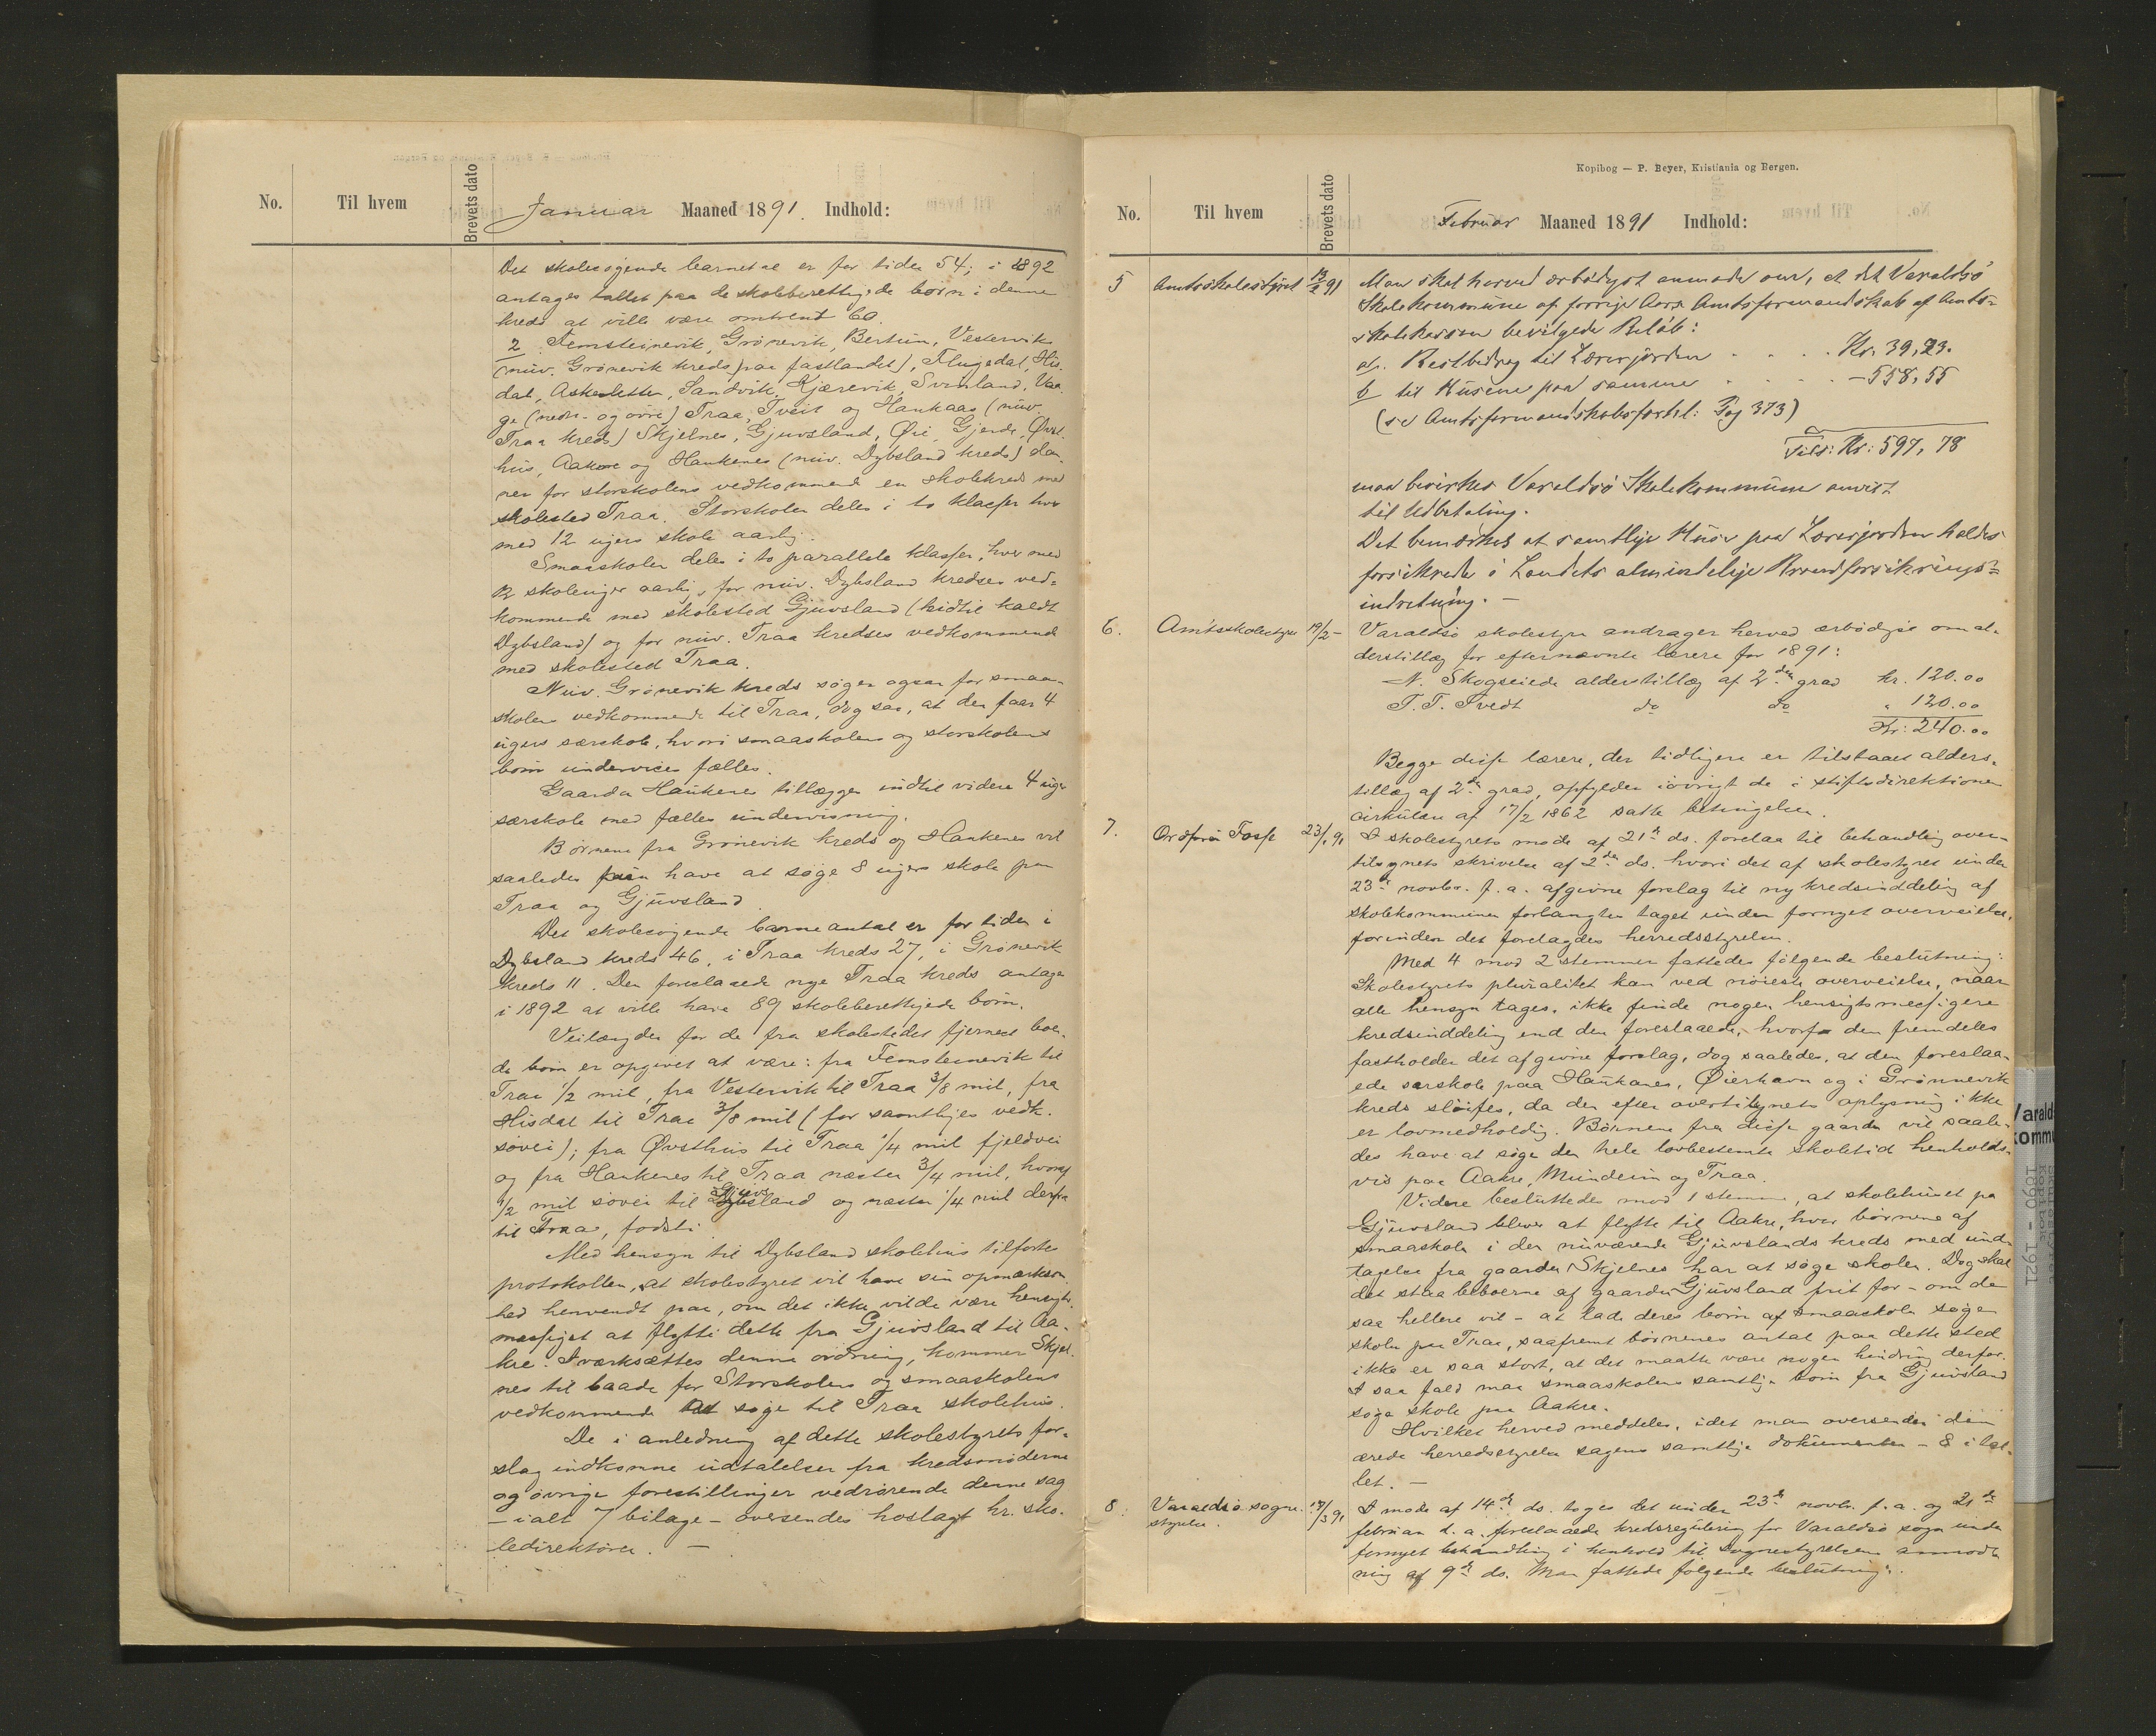 No. Til hvem Brevets dato Januar Maaned 1891. Indhold:
Det skolesøgende barnetal er for tiden 54; i 1892
antages tallet paa de skoleberettigede børn i denne
kreds at ville være omtrent 60.
2. Femsteinevik, Grønevik, Bertün, Vestervik
(nuv. Grønevik kreds paa fastlandet), Flugedal, His-
dal, Askesletten, Sandvik, Kjærevik, Svinland, Vaa
ge (nedre- og øvre) Traa, Tveit og Haukaas (nuv.
Traa kreds) Skjelnes, Gjuvsland, Øie, Gjerde, Øvst-
hus, Aakre og Haukenes (nuv. Dybsland kreds) dan-
ner for storskolens vedkommende en skolekreds med
skolested Traa. Storskolen deles i to klasser hver
med 12 ugers skole aarlig.
Smaaskolen deles i to parallele klasser, hver med
12 skoleuger aarlig, for nuv. Dybsland kredses ved-
kommende med skolested Gjuvsland (hidtil kaldt
Dybsland) og for nuv. Traa kredses vedkommende
med skolested Traa.
Nuv. Grønevik kreds søger ogsaa for smaa-
skolens vedkommende til Traa, dog saa, at den faar 4
ugers særskole, hvori smaaskolens og storskolens
børn undervises fælles.
Gaarden Haukenes tillægges indtil videre 4 uger
særskole med fælles undervisning.
Børnene fra Grønevik kreds og Haukenes vil
saaledes kun have at søge 8 ugers skole paa
Traa og Gjuvsland.
Det skolesøgende barneantal er for tiden i
Dybsland kreds 46, i Traa kreds 27, i Grønevik
kreds 11. Den foreslaaede nye Traa kreds antages
i 1892 at ville have 89 skoleberettigede børn.
Veilængden for de fra skolestedet fjernest boen-
de børn er opgivet at være: fra Femsteinevik til
Traa 1/2 mil, fra Vestervik til Traa 3/8 mil, fra
Hisdal til Traa 3/8 mil (for samtliges vedk.
søvei); fra Øvsthus til Traa 1/4 mil fjeldvei
og fra Haukenes til Traa næsten 3/4 mil, hvoraf
1/2 mil søvei til Gjuvsland og næsten 1/4 mil derfra
til Traa, fodsti.
Med hensyn til Dybsland skolehus tilføres
protokollen, at skolestyret vil have sin opmærksom-
hed henvendt paa, om det ikke vilde være hensigts-
mæssigst at flytte dette fra Gjuvsland til Aa-
kre. Iværksættes denne ordning, kommer Skjel-
nes til baade for Storskolens og smaaskolens
vedkommende at søge til Traa skolehus.
De i anledning af dette skolestyrets for-
slag indkomne udtalelser fra kredsmøderne
og øvrige forestillinger vedrørende denne sag
– ialt 7 bilage – oversendes hoslagt hr. sko-
ledirektøren. –
Kopibog — P. Beyer, Kristiania og Bergen.
No. Til hvem Brevets dato Februar Maaned 1891 Indhold:
5 Amtsskolestyret 13/2 91 Man skal herved ærbødigst anmode om, at det Varaldsø
Skolekommune af forrige Aars Amtsformandskab af Amts-
skolekassen bevilgede Beløb:
a. Restbidrag til Lærerjorden . . . . Kr. 39,23.
b til Husene paa samme . . . . – 558,55
(se Amtsformandskabsforhl: Pag 373)
Tils: Kr: 597,78
maa bevirkes Varaldsø Skolekommune anvist
til Udbetaling.
Det bemærkes at samtlige Huse paa Lærerjorden holdes
forsikrede i Landets almindelige Brandforsikrings-
indretning. –
6. Amtsskolestyre 19/2 – Varaldsø skolestyre andrager herved ærbødigst om al-
derstillæg for efternævnte lærere for 1891:
N. Skogseide alderstillæg af 2den grad kr. 120.00
T. T. Tvedt do do " 120.00
Kr: 240.00
Begge disse lærere, der tidligere er tilstaaet alders-
tillæg af 2den grad, opfylder iøvrigt de i stiftsdirektionens
cirkulær af 17/2 1862 satte betingelser.
7. Ordfører Fosse 23/2 91 I skolestyrets møde af 21de ds. forelaa til behandling over-
tilsynets skrivelse af 2den ds. hvori det af skolestyret under
23de novbr. f. a. afgivne forslag til ny kredsinddeling af
skolekommunen forlanges taget under fornyet overveielse,
forinden det forelægdes herredsstyrelsen.
Med 4 mod 2 stemmer fattedes følgende beslutning:
Skolestyrets pluralitet kan ved nøieste overveielse, naar
alle hensyn tages, ikke finde nogen hensigtsmæssigere
kredsinddeling end den foreslaaede, hvorfor den fremdeles
fastholder det afgivne forslag, dog saaledes, at den foreslaa-
ede særskole paa Haukanes, Øierhavn og i Grønnevik
kreds sløifes, da den efter overtilsynets oplysning ikke
er lovmedholdig. Børnene fra disse gaarde vil saale-
des have at søge den hele lovbestemte skoletid henholds-
vis paa Aakre, Mundeim og Traa.
Videre besluttedes mod 1 stemme, at skolehuset paa
Gjuvsland bliver at flytte til Aakre, hvor børnene af
smaaskolen i den nuværende Gjuvslands kreds med und-
tagelse fra gaarden Skjelnes har at søge skolen. Dog skal
det staa beboerne af gaarden Gjuvsland frit for – om de
saa hellere vil – at lade deres børn af smaaskolen søge
skolen paa Traa, saafremt børnenes antal paa dette sted
ikke er saa stort, at det maatte være nogen hindring derfor.
I saa fald maa smaaskolens samtlige børn fra Gjuvsland
søge skole paa Aakre.
Hvilket herved meddeles, idet man oversender den
ærede herredsstyrelse sagens samtlige dokumenter – 8 i tal-
let. –
8. Varaldsø sogne- 17/3 91 I møde af 14de ds. toges det under 23de novbr. f. a. og 21de
styrelse. februar d. a. foreslaaede kredsregulering for Varaldsø sogn under
fornyet behandling i henhold til sognestyrelsens anmod-
ning af 9de ds. Man fattede følgende beslutning:
Varalds
kommu
1890 - 1921